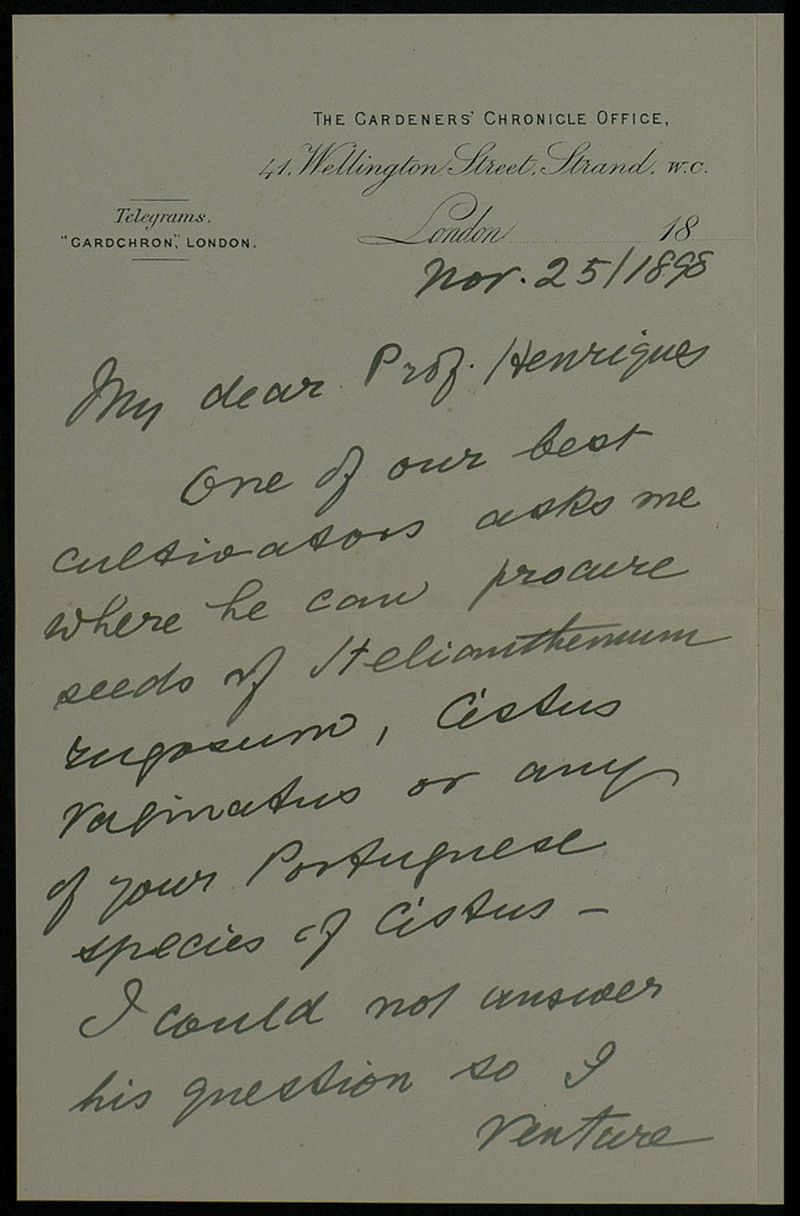 THE GARDENERS' CHRONICLE OFFICE,
41, Wellington Street, Strand, W.C.
Telegrams.
"GARDCHRON," LONDON.
London 18
Nov. 25/1898
My dear Prof. Henriques
One of our best
cultivators asks me
where he can procure
seeds of Helianthemum
rugosum, Cistus
vaginatus or any
of your Portuguese
species of Cistus –
I could not answer
his question so I
venture